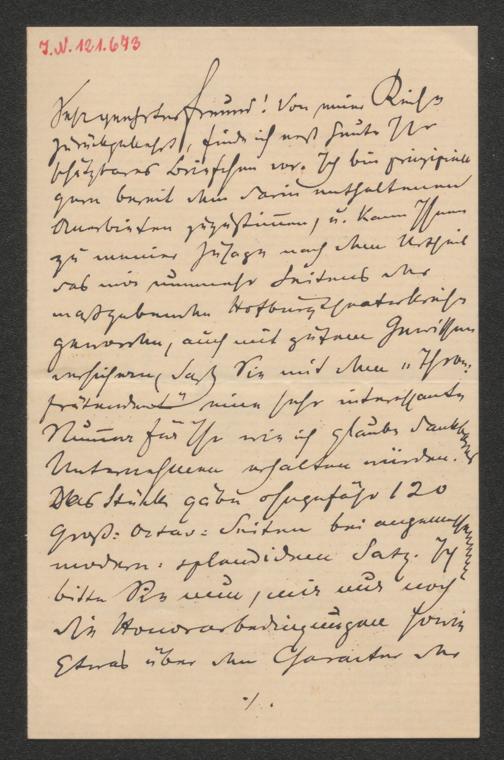 J.N. 121.673
Sehr geehrter Freund! Von meiner Reise
zurückgekehrt, finde ich erst heute Ihr
geschätztes Briefchen vor. Ich bin prinzipiell
gern bereit dem darin enthaltenen
Anerbieten zuzustimmen, u. kann Ihnen
zu meiner Zusage nach dem Urtheil
das mir nunmehr Seitens der
maßgebenden Hofburgtheaterkreise
geworden, auch mit gutem Gewissen
versichern, daß Sie mit dem „Thron-
prätendent" eine sehr interessante
Nummer für Ihr wie ich glaube dankbares
Unternehmen erhalten würden.
Das Stück gäbe ohngefähr 120
Groß-Octav-Seiten bei angemessenem
modern-splendidem Satz. Ich
bitte Sie nun, mir nur noch
die Honorarbedingungen sowie
Etwas über den Charakter der
./.